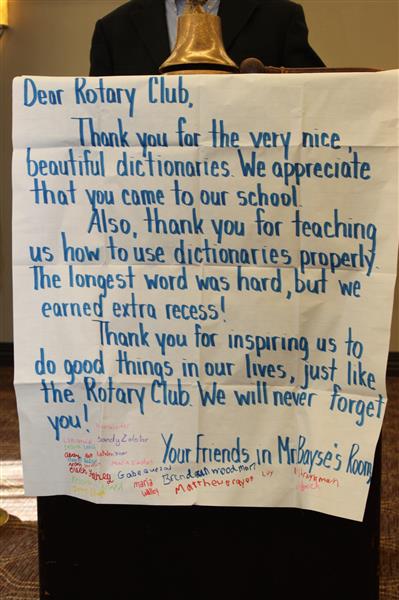 Dear Rotary Club,
Thank you for the very nice,
beautiful dictionaries. We appreciate
that you came to our school.
Also, thank you for teaching
us how to use dictionaries properly.
The longest word was hard, but we
earned extra recess!
Thank you for inspiring us to
do good things in our lives, just like
the Rotary Club. We will never forget
you!
Your Friends in Mr. Bayse's Room
Maria